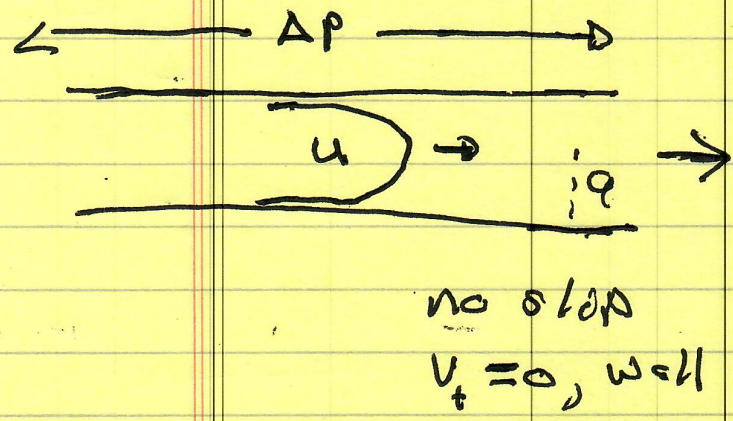 ΔP
u
q
no slip
V_t = 0, wall